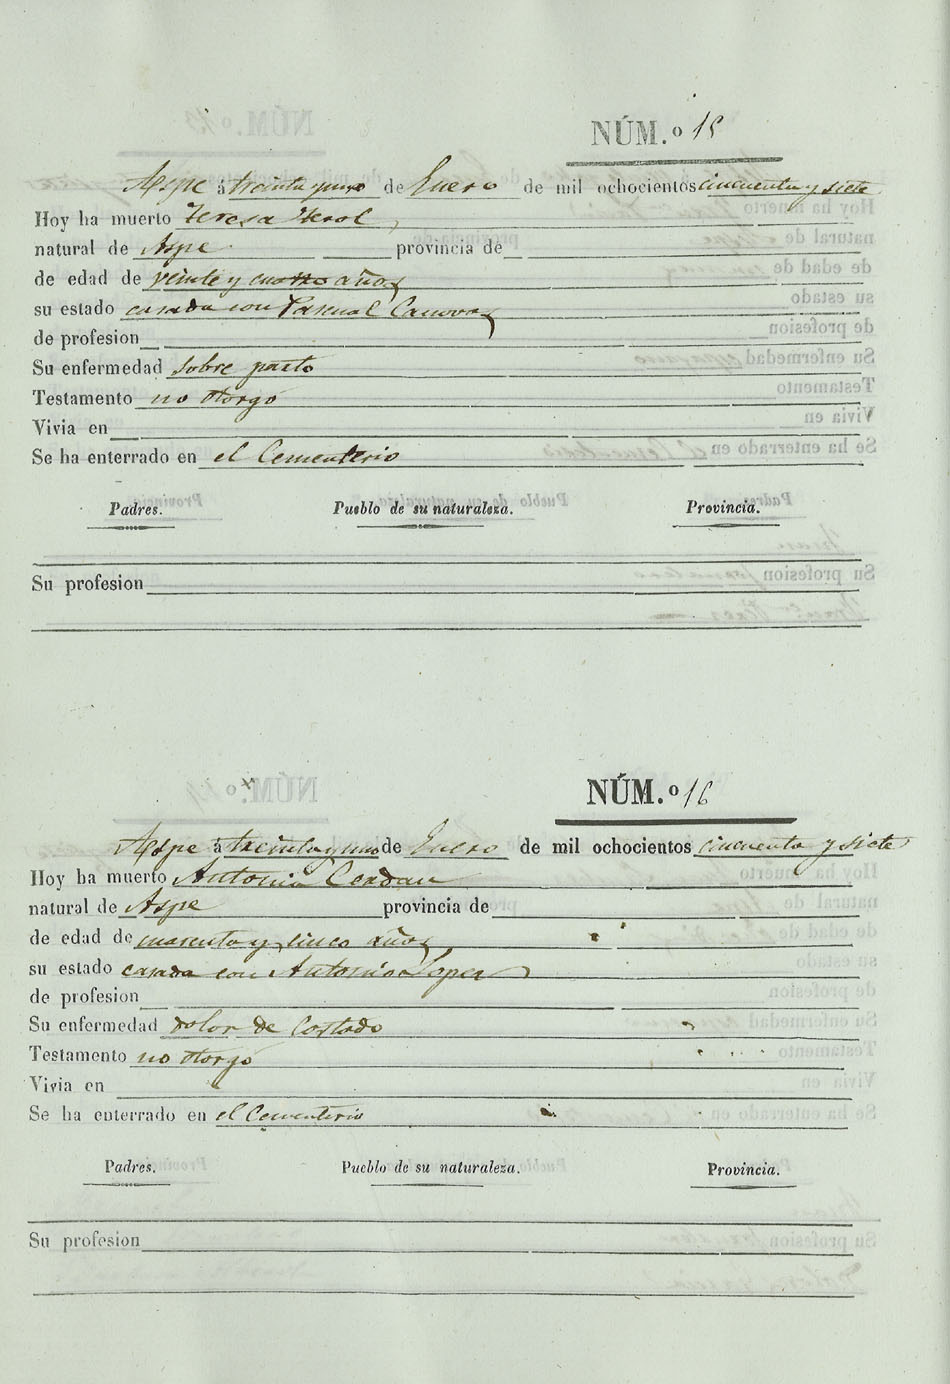 NÚM.º 15
Aspe á treinta y uno de Enero de mil ochocientos cincuenta y siete
Hoy ha muerto Teresa Herol,
natural de Aspe provincia de
de edad de veinte y cuatro años
su estado casada con Pascual Canovas
de profesion
Su enfermedad Sobre parto
Testamento no Otorgó
Vivia en
Se ha enterrado en el Cementerio
Padres. Pueblo de su naturaleza. Provincia.
Su profesion
NÚM.º 16
Aspe á treinta y uno de Enero de mil ochocientos cincuenta y siete
Hoy ha muerto Antonia Cerdan
natural de Aspe provincia de
de edad de cuarenta y cinco años
su estado casada con Antonio Lopez
de profesion
Su enfermedad dolor de Costado
Testamento no Otorgó
Vivia en
Se ha enterrado en el Cementerio
Padres. Pueblo de su naturaleza. Provincia.
Su profesion